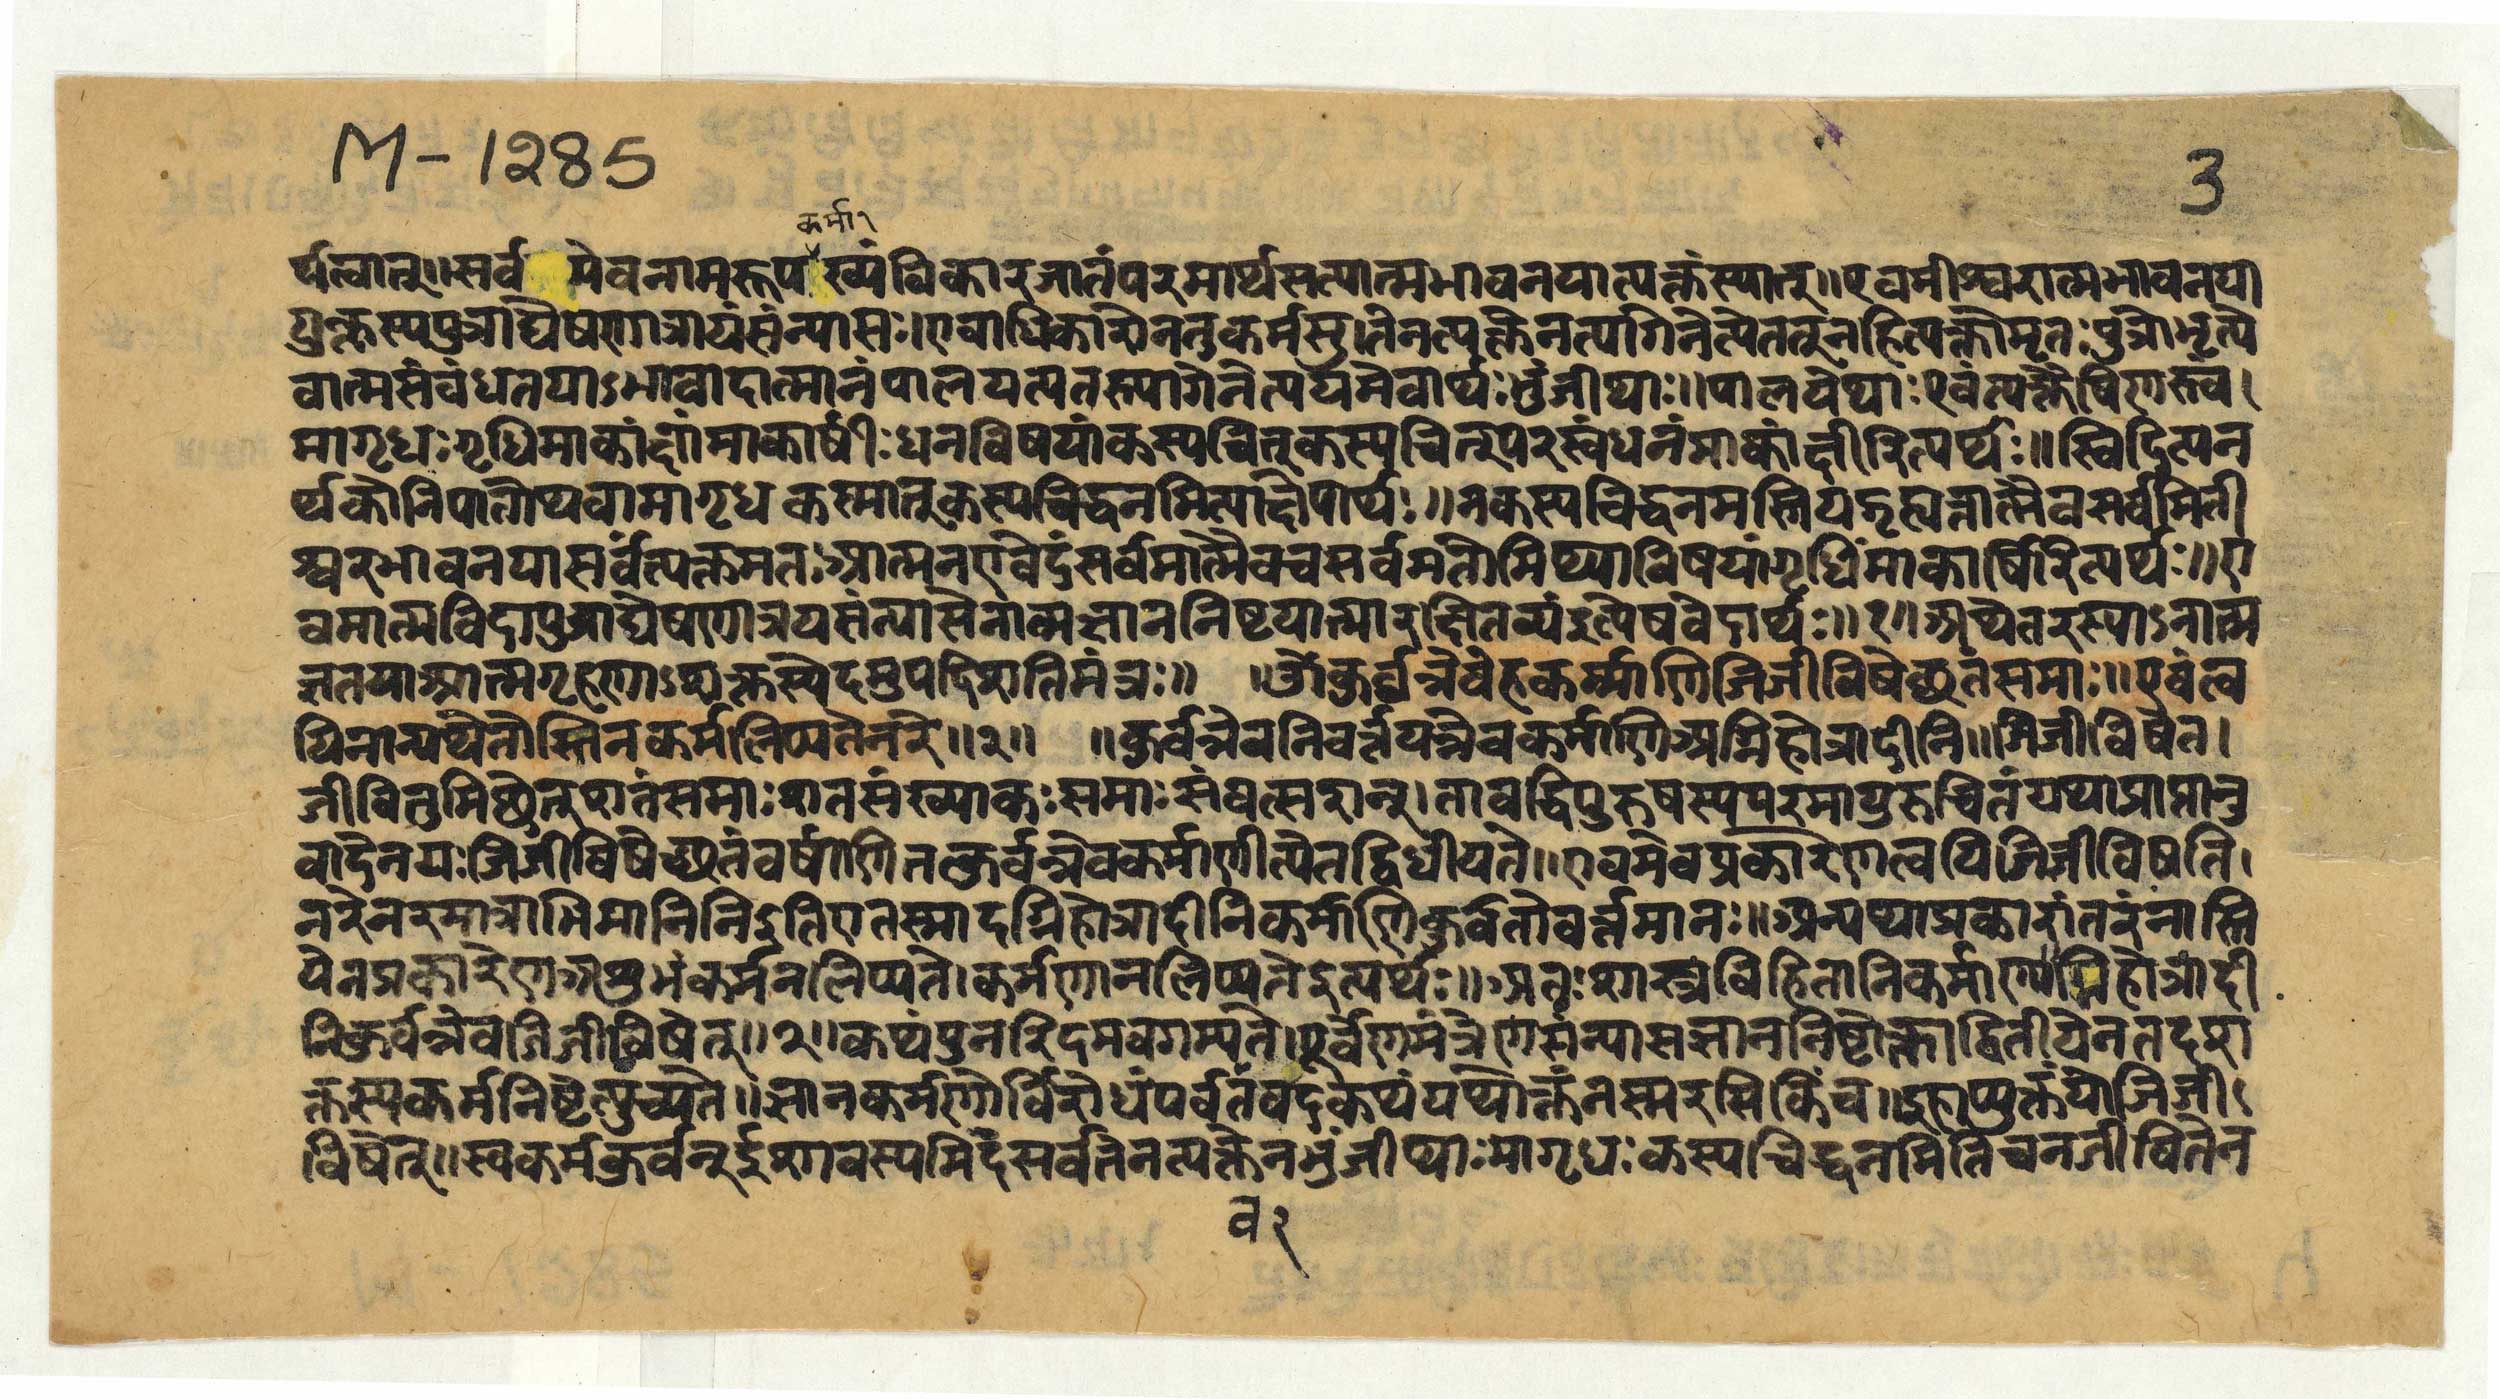 M-1285
3
कर्मा१
र्थत्वात्॥सर्वमेवनामरूपख्यंविकारजातंपरमार्थसत्यात्मभावनयात्यक्तंस्यात्॥एवमीश्वरात्मभावनया
युक्तस्यपुत्राद्येषणात्रायंसंन्यासः।एवाधिकारोनतुकर्मसु।तेनत्यक्तेनत्यागेनेत्येतत्नहित्यक्तोमृतःपुत्रोभृत्य
वात्मसंबंधतयाऽभावादात्मानंपालयत्यतस्यागेनेत्ययमेवार्थःभुंजीथाः॥पालयेथाःएवंत्यक्तैषिणस्तव।
मागृधःगृधिमाकांक्षांमाकार्षीःधनविषयांकस्यचित्कस्यचित्परस्वंधनंमाकांक्षीरित्यर्थः॥स्विदित्यन
र्थकोनिपातोथवामागृधकस्मात्कस्यचिद्धनमित्याक्षेपार्थः॥नकस्यचिद्धनमस्तियद्गृह्यतात्मैवसर्वमिती
श्वरभावनयासर्वंत्यक्तमतःआत्मनएवेदंसर्वमात्मैवचसर्वमतोमिथ्याविषयांगृधिंमाकार्षीरित्यर्थः॥ए
वमात्मविदापुत्राद्येषणात्रयसंन्यासेनात्मज्ञाननिष्टयात्मारक्षितव्यंइत्येषवेदार्थः॥१॥अथेतरस्याऽनात्म
ज्ञतयाआत्मगृहणाऽशक्तस्येदमुपदिशतिमंत्रः॥ ॥ओंकुर्वन्नेवेहकर्म्माणिजिजीविषेच्छतंसमाः॥एवंत्व
यिनान्यथेतोस्तिनकर्मलिप्यतेनरे॥२॥ ॥कुर्वन्नेवनिवर्त्तयन्नेवकर्माणिअग्निहोत्रादीनि॥जिजीविषेत।
जीवितुमिछेत्शतंसमाःशतसंख्याकःसमाःसंवत्सरान्।तावद्धिपुरुषस्यपरमायुरुचितंयथाप्राप्तानु
वादेनयःजिजीविषेच्छतंवर्षाणितत्कुर्वन्नेवकर्माणीत्येतद्विधीयते॥एवमेवप्रकारेणत्वयिजिजीविषति।
नरेनरमात्राभिमानिनिइतिएतस्मादग्निहोत्रादीनिकर्माणिकुर्वतोवर्त्तमानः॥अन्यथाप्रकारांतरंनास्ति
येनप्रकारेणअशुभंकर्मनलिप्यते।कर्मणानलिप्यतेइत्यर्थः॥अतःशास्त्रविहितानिकर्माण्यग्निहोत्रादी
निकुर्वन्नेवजिजीविषेत्॥२॥कथंपुनरिदमवगम्यते।पूर्वेणमंत्रेणसंन्यासज्ञाननिष्टोक्ताद्वितीयेनतदशा
क्तस्यकर्मनिष्टेत्युच्यते॥ज्ञानकर्मणोर्विरोधंपर्वतवदकंथंयथोक्तंनस्मरसिकिंच॥इहाप्युक्तंयोजिजीऽ
विषेत्॥स्वकर्मकुर्वन्ईशावस्यमिदंसर्वंतेनत्यक्तेनभुंजीथाःमागृधःकस्यचिद्धनमितिचनजीवितेन
व२